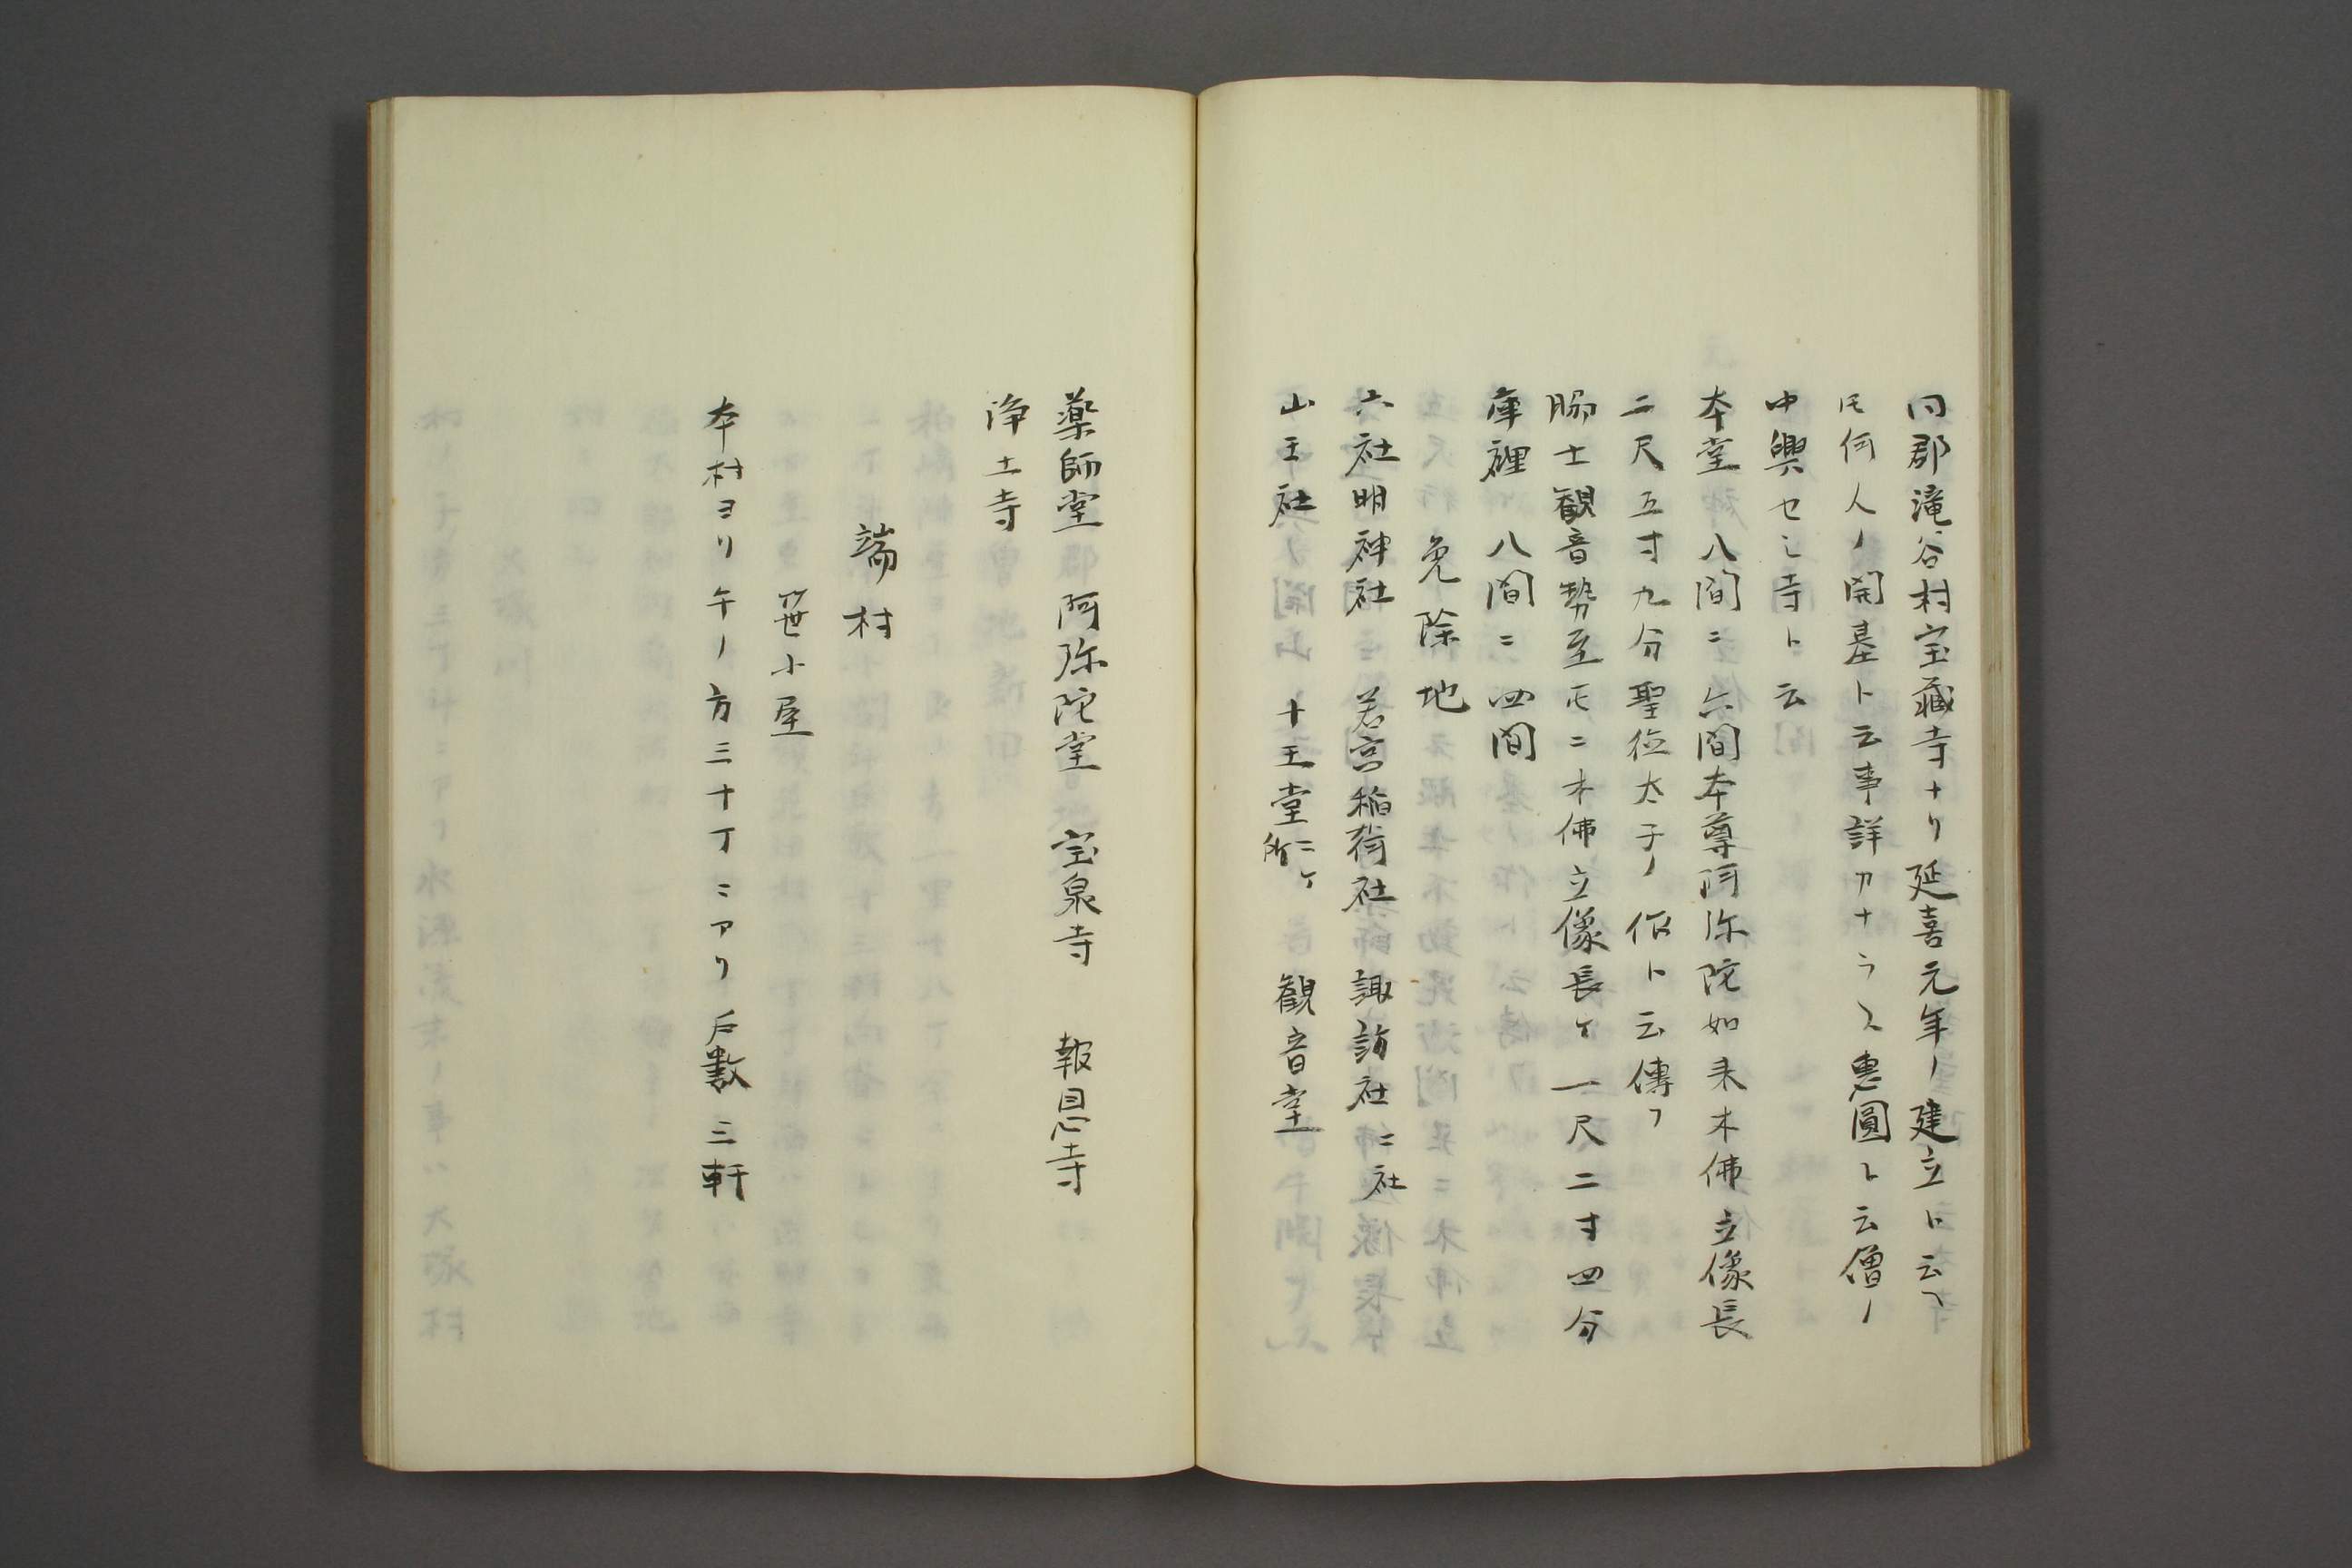 同郡滝谷村宝蔵寺ナリ延喜元年ノ建立ト云フ
𪜈何人ノ開基ト云事詳カナラス恵圓ト云僧ノ
中興セシ寺ト云
本堂 八間ニ六間本尊阿弥陀如来木佛立像長
二尺五寸九分聖徳太子ノ作ト云傳フ
脇士観音勢至𪜈ニ木佛立像長ケ一尺二寸四分
庫裡 八間ニ四間
免除地
六社明神社 若宮稲荷社 諏訪社二社
山王社 十王堂二ケ所 観音堂
薬師堂 阿弥陀堂 宝泉寺 報恩寺
浄土寺
端村
笹小屋
本村ヨリ午ノ方三十丁ニアリ戸数三軒